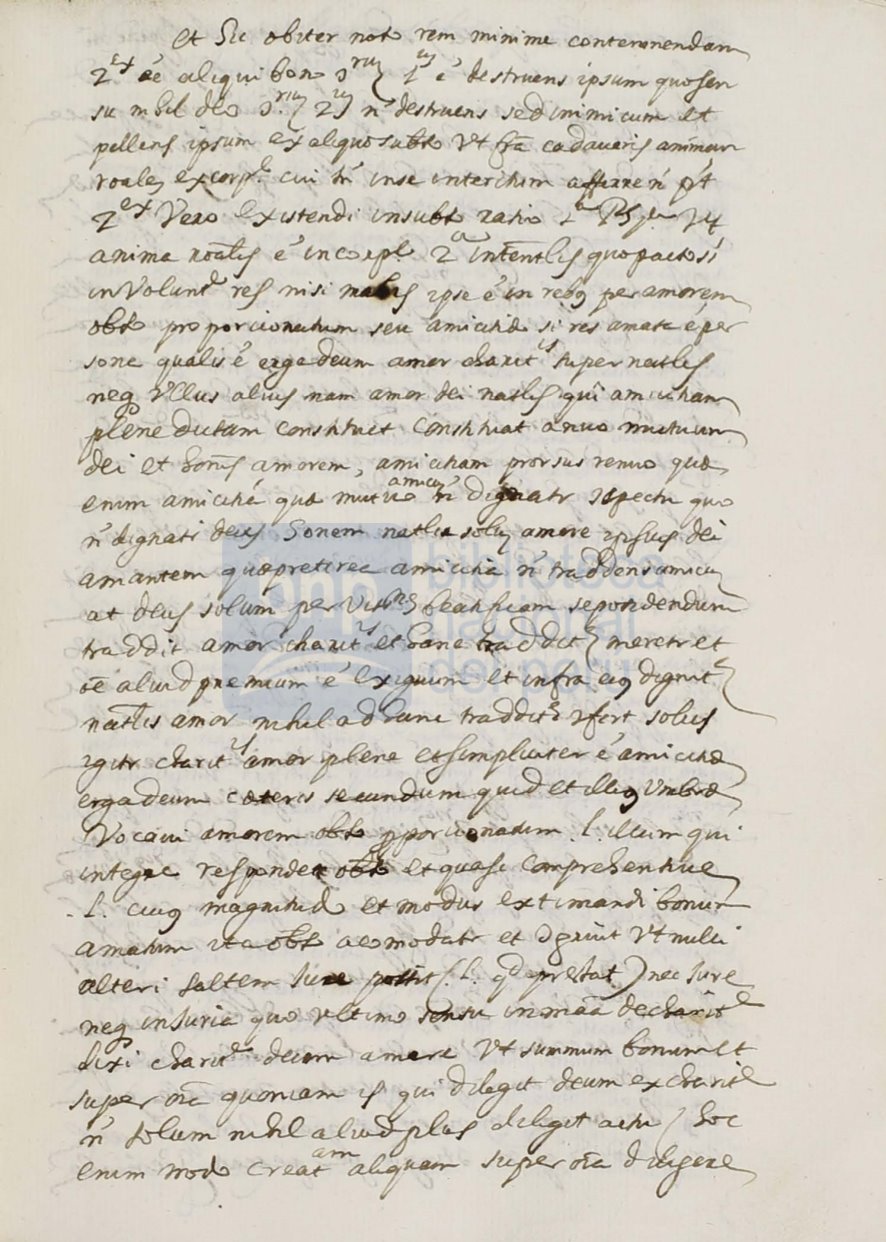 et sic obiter noto rem minime contemnendam
2ex ēe aliqui bono 1us ē destruens ipsum quo sen
su nihil deo 2us n̄ destruens sed inimicum et
pellens ipsum ex aliquo subto Vt fra cadaveris animam
roale excorpe cui tn̄ inse interitum afferre n̄ pt̄
2ex Vero existendi insubto ratio 1a
anima roalis ē incorpe 2a intentlis quopacto si
in Volunte res nisi malis ipse ē in rebq per amorem
obto proporcionatum seu amicitiæ si res amata ē per
sone qualis ē erga deum amor charitis supernatlis
neq Vllus alius nam amor dei natlis qui amicitiam
plene dictam constituet constituat anuo mutuum
dei et homs amorem, amicitiam prorsus renuo quæ
enim amicitiæ quæ mutuo amicus n̄ dignatr respectu quo
n̄ dignati deus honem natlis solu amore ipsius dei
amantem quæ pretirea amicitia n̄ traddens amicu
at deus solum per Visnes beatificam se possidendum
traddit amori charitis et hanc traddit meretr et
oē aliud premium ē exiguum et infra eiq dignite
natlis amor nihil ad hanc traddite refert solus
igitr charitis amor plene et simpliciter ē amicitiæ
erga deum cæteris secundum quid et illiq Vmbræ
Vocavi amorem obto pporcionatum .l. illum qui
integre respondet obto et quasi comprehensive
.l. cuiq magnitudo et modus extimandi bonum
amatum ita obto acomodatr et Vt nulli
alteri saltem Iure possit (.l. qd prestat) nec Iure
neq inIuria quo Vltimo sensu inmaa de charite
dixi charite deum amare Vt summum bonum et
super oia quoniam is qui diligit deum ex charite
n̄ solum nihil aliud plus diligit actu hoc
enim modo creatam aliquam super oia diligere